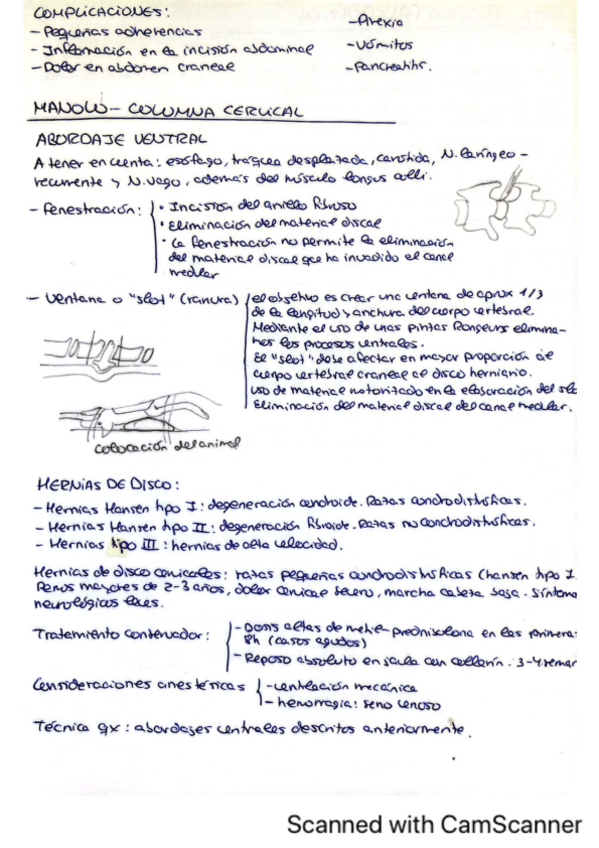 COMPLICACIONES:
- Pequeñas adherencias
- Inflamación en la incisión abdominal
- Dolor en abdomen craneal
- Pirexia
- Vómitos
- Pancreatitis.
MANOLO - COLUMNA CERVICAL
ABORDAJE VENTRAL
A tener en cuenta: esófago, tráquea desplazada, carótida, N. laríngeo-
recurrente y N. vago, además del músculo longus colli.
- Fenestración:
• Incisión del anillo fibroso
• Eliminación del material discal
• La fenestración no permite la eliminación
del material discal que ha invadido el canal
medular
- Ventana o "slot" (ranura)
el objetivo es crear una ventana de aprox 1/3
de la longitud y anchura del cuerpo vertebral.
Mediante el uso de unas pinzas Rongeurs elimina-
mos los procesos ventrales.
El "slot" debe afectar en mayor proporción al
cuerpo vertebral craneal al disco herniario.
uso de material motorizado en la elaboración del slo
Eliminación del material discal del canal medular.
colocación del animal
HERNIAS DE DISCO:
- Hernias Hansen tipo I: degeneración condroide. Razas condrodistróficas.
- Hernias Hansen tipo II: degeneración fibroide. Razas no condrodistróficas.
- Hernias tipo III: hernias de alta velocidad.
Hernias de disco cervicales: razas pequeñas condrodistróficas (hansen tipo I
Perros mayores de 2-3 años, dolor cervical severo, marcha cabeza baja. Síntoma
neurológicos leves.
Tratamiento conservador:
- Dosis altas de metil-prednisolona en las primera
8h (casos agudos)
- Reposo absoluto en jaula con collarín. 3-4 semar
Consideraciones anestésicas
- ventilación mecánica
- hemorragia: seno venoso
Técnica qx: abordajes ventrales descritos anteriormente.
Scanned with CamScanner